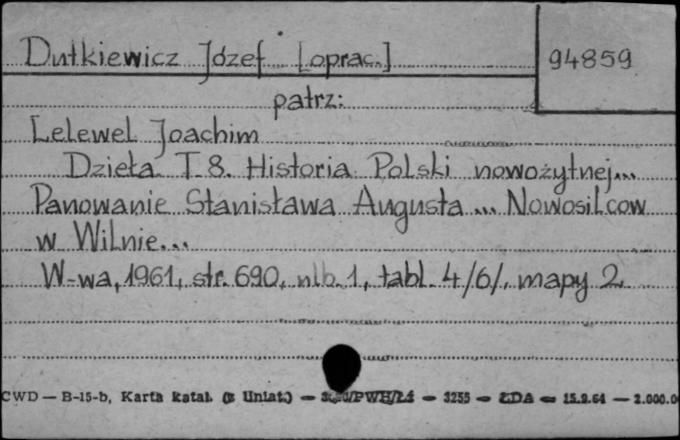 Dutkiewicz Józef [oprac.] 94859
patrz:
Lelewel Joachim
Dzieła T. 8. Historia Polski nowożytnej...
Panowanie Stanisława Augusta ... Nowosilcow
w Wilnie...
W-wa, 1961, str. 690, nlb. 1, tabl. 4/6/, mapy 2
CWD — B-15-b, Karta katal. (z Uniat.) — /PWH/Łś — 3255 — ŁDA — 15.2.64 — 2.000.0